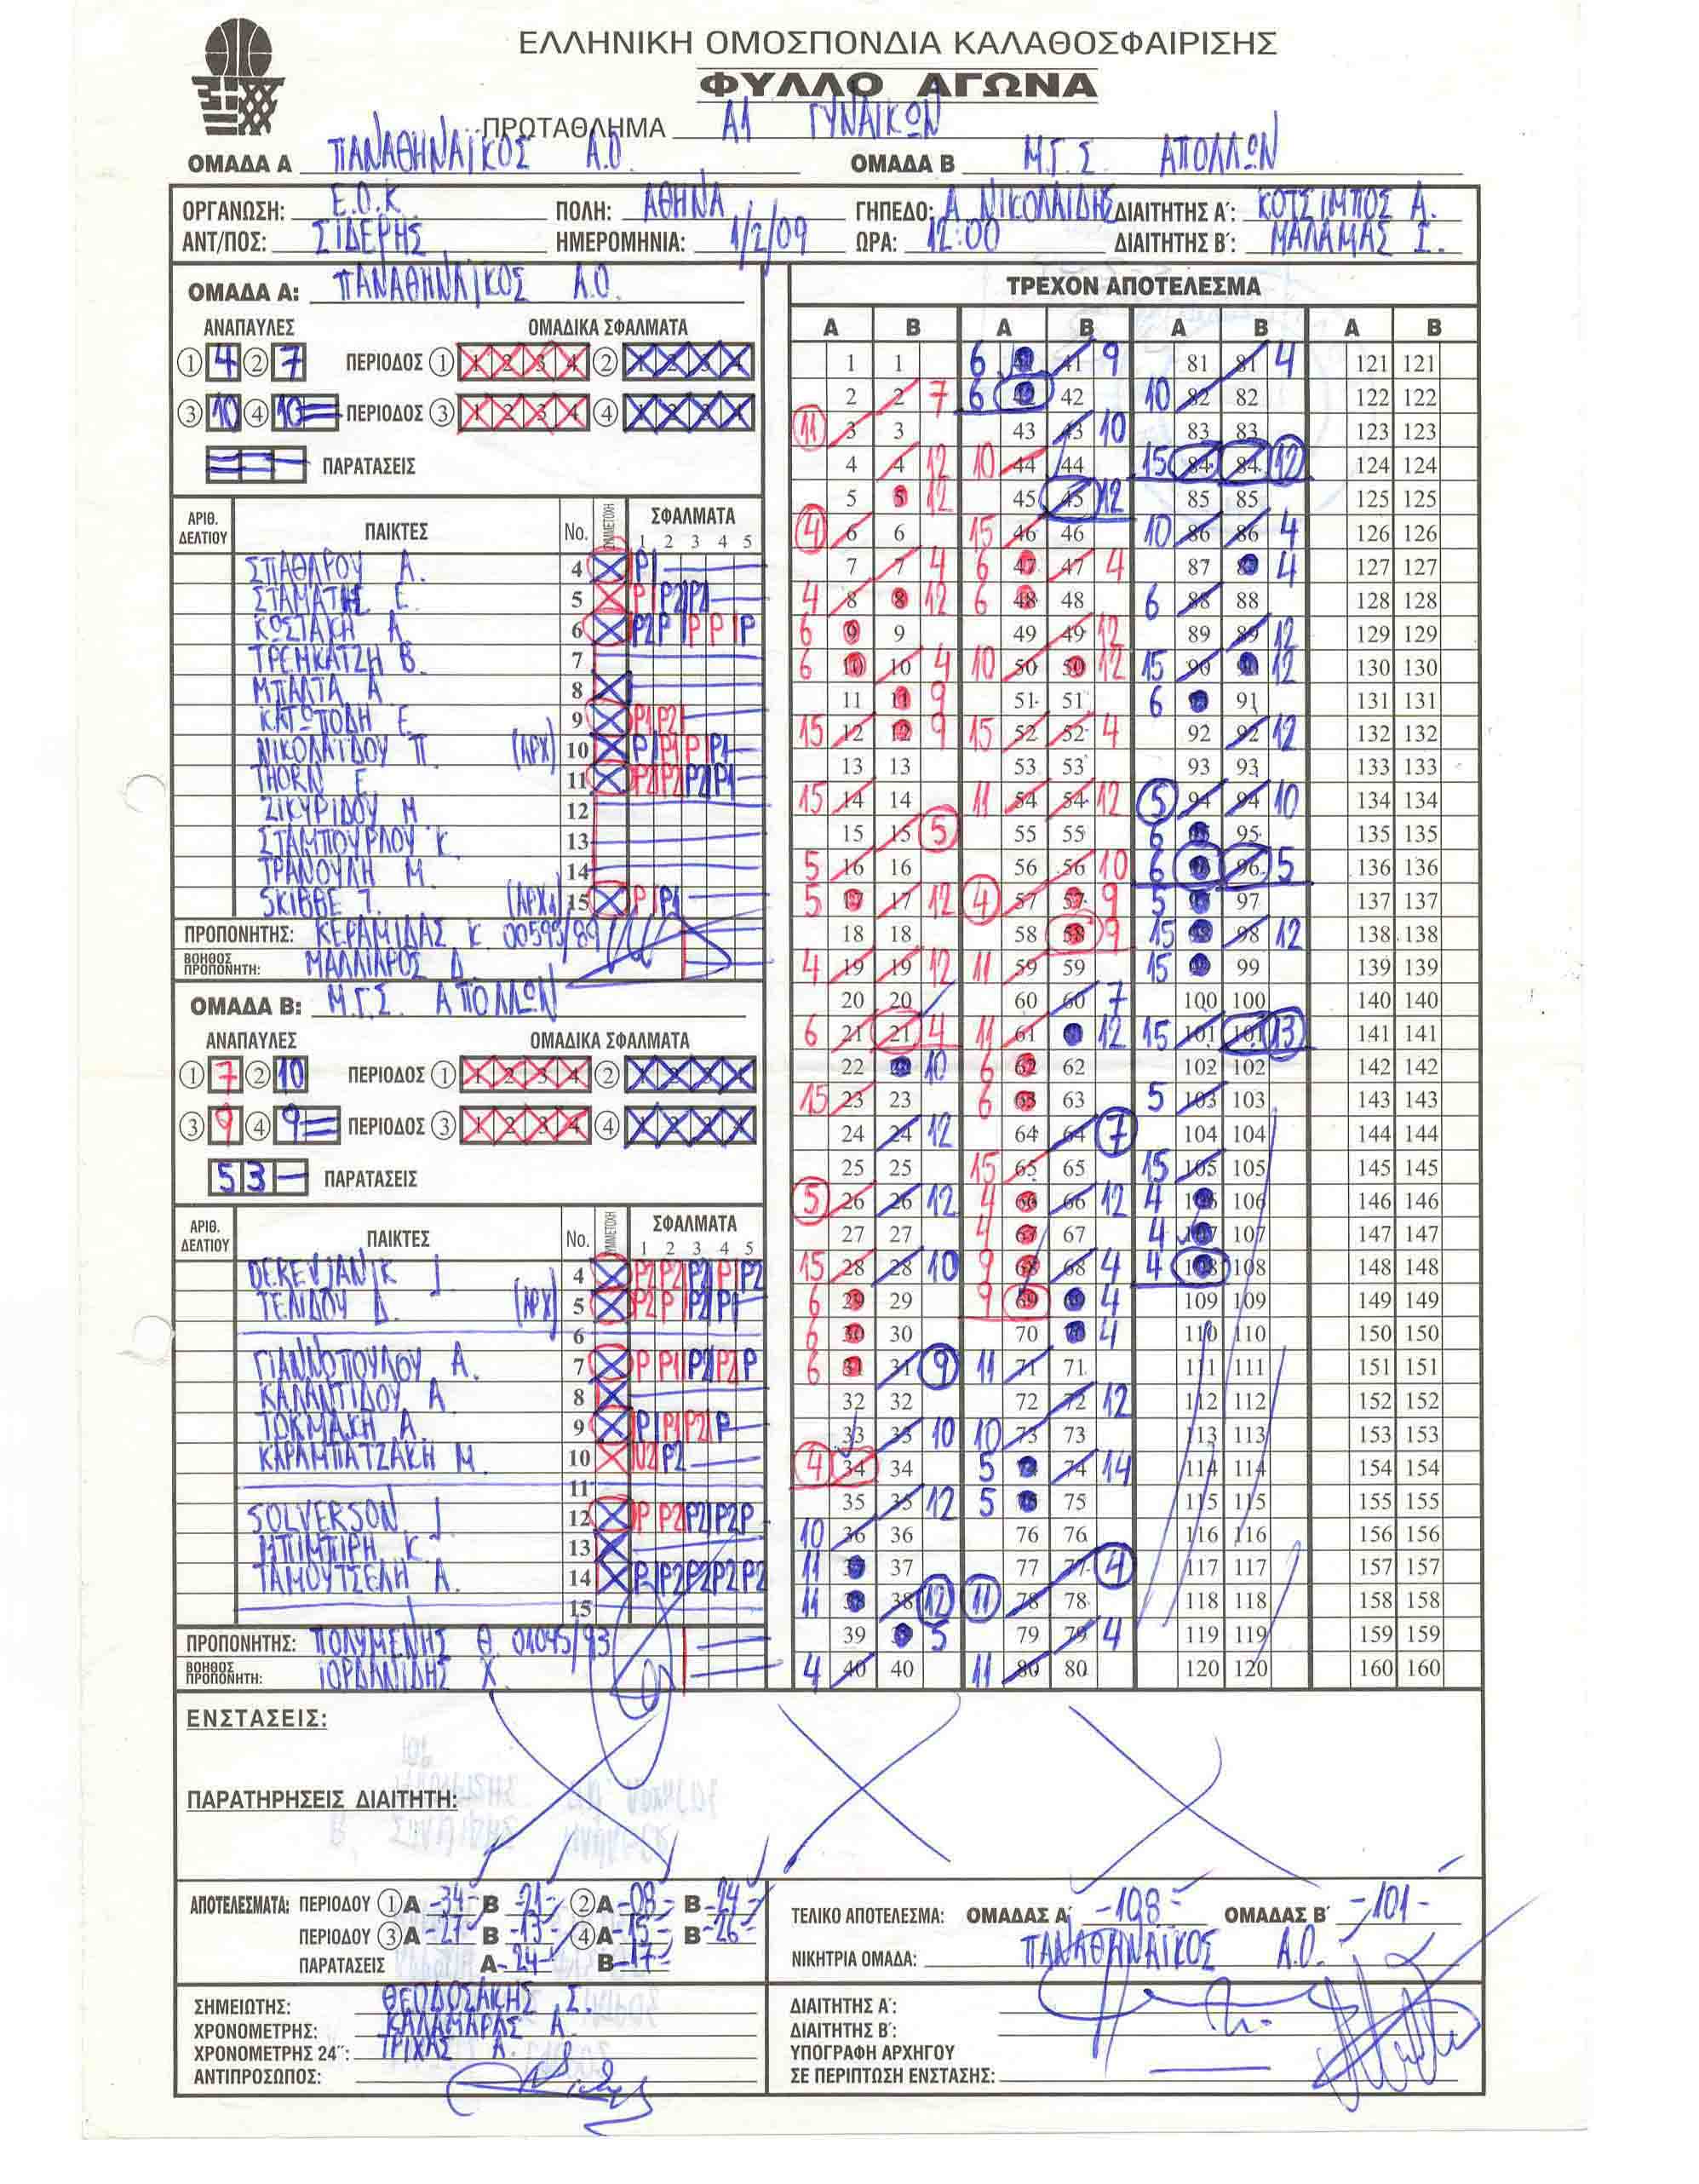 ΕΛΛΗΝΙΚΗ ΟΜΟΣΠΟΝΔΙΑ ΚΑΛΑΘΟΣΦΑΙΡΙΣΗΣ
ΦΥΛΛΟ ΑΓΩΝΑ
ΠΡΩΤΑΘΛΗΜΑ Α1 ΓΥΝΑΙΚΩΝ
ΟΜΑΔΑ Α ΠΑΝΑΘΗΝΑΪΚΟΣ Α.Ο. ΟΜΑΔΑ Β Μ.Γ.Σ. ΑΠΟΛΛΩΝ
ΟΡΓΑΝΩΣΗ: Ε.Ο.Κ. ΠΟΛΗ: ΑΘΗΝΑ ΓΗΠΕΔΟ: Α. ΝΙΚΟΛΑΙΔΗΣ ΔΙΑΙΤΗΤΗΣ Α΄: ΚΟΤΣΙΜΠΟΣ Α.
ΑΝΤ/ΠΟΣ: ΣΙΔΕΡΗΣ ΗΜΕΡΟΜΗΝΙΑ: 1/2/09 ΩΡΑ: 12:00 ΔΙΑΙΤΗΤΗΣ Β΄: ΜΑΛΑΜΑΣ Σ.
ΟΜΑΔΑ Α: ΠΑΝΑΘΗΝΑΪΚΟΣ Α.Ο.
ΑΝΑΠΑΥΛΕΣ ΟΜΑΔΙΚΑ ΣΦΑΛΜΑΤΑ
1 4 2 7 ΠΕΡΙΟΔΟΣ 1 1 2 3 4 2 1 2 3 4
3 10 4 10 ΠΕΡΙΟΔΟΣ 3 1 2 3 4 4 1 2 3 4
ΠΑΡΑΤΑΣΕΙΣ
ΑΡΙΘ. ΔΕΛΤΙΟΥ ΠΑΙΚΤΕΣ No. ΣΥΜΜΕΤΟΧΗ ΣΦΑΛΜΑΤΑ 1 2 3 4 5
ΣΠΑΘΑΡΟΥ Α. 4 P1
ΣΤΑΜΑΤΗΣ Ε. 5 P P2 P2
ΚΩΣΤΑΚΗ Α. 6 P2 P P P P
ΤΡΕΜΚΑΤΖΗ Β. 7
ΜΠΑΛΤΑ Α 8
ΚΑΤΩΠΟΔΗ Ε. 9 P1 P2
ΝΙΚΟΛΑΪΔΟΥ Π. (ΑΡΧ) 10 P P1 P P1
THORN E. 11 P2 P2 P2 P1
ΖΙΚΥΡΙΔΟΥ Μ 12
ΣΤΑΜΠΟΥΡΛΟΥ Κ. 13
ΤΡΑΝΟΥΛΗ Μ. 14
SKIBBE J. (ΑΡΧ) 15 P P1
ΠΡΟΠΟΝΗΤΗΣ: ΚΕΡΑΜΙΔΑΣ Κ 00593/89
ΒΟΗΘΟΣ ΠΡΟΠΟΝΗΤΗ: ΜΑΛΛΙΑΡΟΣ Δ.
ΟΜΑΔΑ Β: Μ.Γ.Σ. ΑΠΟΛΛΩΝ
ΑΝΑΠΑΥΛΕΣ ΟΜΑΔΙΚΑ ΣΦΑΛΜΑΤΑ
1 7 2 10 ΠΕΡΙΟΔΟΣ 1 1 2 3 4 2 1 2 3 4
3 9 4 9 ΠΕΡΙΟΔΟΣ 3 1 2 3 4 4 1 2 3 4
5 3 ΠΑΡΑΤΑΣΕΙΣ
ΑΡΙΘ. ΔΕΛΤΙΟΥ ΠΑΙΚΤΕΣ No. ΣΥΜΜΕΤΟΧΗ ΣΦΑΛΜΑΤΑ 1 2 3 4 5
DEREVJANIK J 4 P2 P2 P2 P P2
ΤΕΛΙΔΟΥ Δ. (ΑΡΧ) 5 P2 P P2 P1
6
ΓΙΑΝΝΟΠΟΥΛΟΥ Α. 7 P P1 P2 P2 P
ΚΑΛΑΝΤΙΔΟΥ Α 8
ΤΟΚΜΑΚΗ Α. 9 P P1 P2 P
ΚΑΡΑΜΠΑΤΖΑΚΗ Μ. 10 U2 P2
11
SOLVERSON J. 12 P P2 P2 P2 P
ΜΠΙΜΠΙΡΗ Κ. 13
ΤΑΜΟΥΤΣΕΛΗ Α. 14 P P2 P2 P2 P2
15
ΠΡΟΠΟΝΗΤΗΣ: ΠΟΛΥΜΕΝΗΣ Θ. 01045/93
ΒΟΗΘΟΣ ΠΡΟΠΟΝΗΤΗ: ΙΟΡΔΑΝΙΔΗΣ Χ.
ΤΡΕΧΟΝ ΑΠΟΤΕΛΕΣΜΑ
Α Β Α Β Α Β Α Β
1 1 6 41 41 9 81 81 4 121 121
2 2 7 6 42 42 10 82 82 122 122
11 3 3 43 43 10 83 83 123 123
4 4 12 10 44 44 15 84 84 12 124 124
5 5 12 45 45 12 85 85 125 125
4 6 6 15 46 46 10 86 86 4 126 126
7 7 4 6 47 47 4 87 87 4 127 127
4 8 8 12 6 48 48 6 88 88 128 128
6 9 9 49 49 12 89 89 12 129 129
6 10 10 4 10 50 50 12 15 90 90 12 130 130
11 11 9 51 51 6 91 91 131 131
15 12 12 9 15 52 52 4 92 92 12 132 132
13 13 53 53 93 93 133 133
15 14 14 11 54 54 12 5 94 94 10 134 134
15 15 5 55 55 6 95 95 135 135
5 16 16 56 56 10 6 96 96 5 136 136
5 17 17 12 4 57 57 9 5 97 97 137 137
18 18 58 58 9 15 98 98 12 138 138
4 19 19 12 11 59 59 15 99 99 139 139
20 20 60 60 7 100 100 140 140
6 21 21 4 11 61 61 12 15 101 101 13 141 141
22 22 10 6 62 62 102 102 142 142
15 23 23 6 63 63 5 103 103 143 143
24 24 12 64 64 7 104 104 144 144
25 25 15 65 65 15 105 105 145 145
5 26 26 12 4 66 66 12 4 106 106 146 146
27 27 4 67 67 4 107 107 147 147
15 28 28 10 9 68 68 4 4 108 108 148 148
6 29 29 9 69 69 4 109 109 149 149
6 30 30 70 70 4 110 110 150 150
6 31 31 9 11 71 71 111 111 151 151
32 32 72 72 12 112 112 152 152
33 33 10 10 73 73 113 113 153 153
4 34 34 5 74 74 14 114 114 154 154
35 35 12 5 75 75 115 115 155 155
10 36 36 76 76 116 116 156 156
11 37 37 77 77 4 117 117 157 157
11 38 38 12 11 78 78 118 118 158 158
39 39 5 79 79 4 119 119 159 159
4 40 40 11 80 80 120 120 160 160
ΕΝΣΤΑΣΕΙΣ:
ΠΑΡΑΤΗΡΗΣΕΙΣ ΔΙΑΙΤΗΤΗ:
ΑΠΟΤΕΛΕΣΜΑΤΑ: ΠΕΡΙΟΔΟΥ 1 Α -34- Β -21- 2 Α -08- Β -24-
ΠΕΡΙΟΔΟΥ 3 Α -27- Β -13- 4 Α -15- Β -26-
ΠΑΡΑΤΑΣΕΙΣ Α -24- Β -17-
ΤΕΛΙΚΟ ΑΠΟΤΕΛΕΣΜΑ: ΟΜΑΔΑΣ Α΄ -108- ΟΜΑΔΑΣ Β΄ -101-
ΝΙΚΗΤΡΙΑ ΟΜΑΔΑ: ΠΑΝΑΘΗΝΑΪΚΟΣ Α.Ο.
ΣΗΜΕΙΩΤΗΣ: ΘΕΟΔΟΣΑΚΗΣ Σ.
ΧΡΟΝΟΜΕΤΡΗΣ: ΚΑΛΑΜΑΡΑΣ Α.
ΧΡΟΝΟΜΕΤΡΗΣ 24΄΄: ΤΡΙΧΑΣ Α.
ΑΝΤΙΠΡΟΣΩΠΟΣ:
ΔΙΑΙΤΗΤΗΣ Α΄:
ΔΙΑΙΤΗΤΗΣ Β΄:
ΥΠΟΓΡΑΦΗ ΑΡΧΗΓΟΥ
ΣΕ ΠΕΡΙΠΤΩΣΗ ΕΝΣΤΑΣΗΣ: